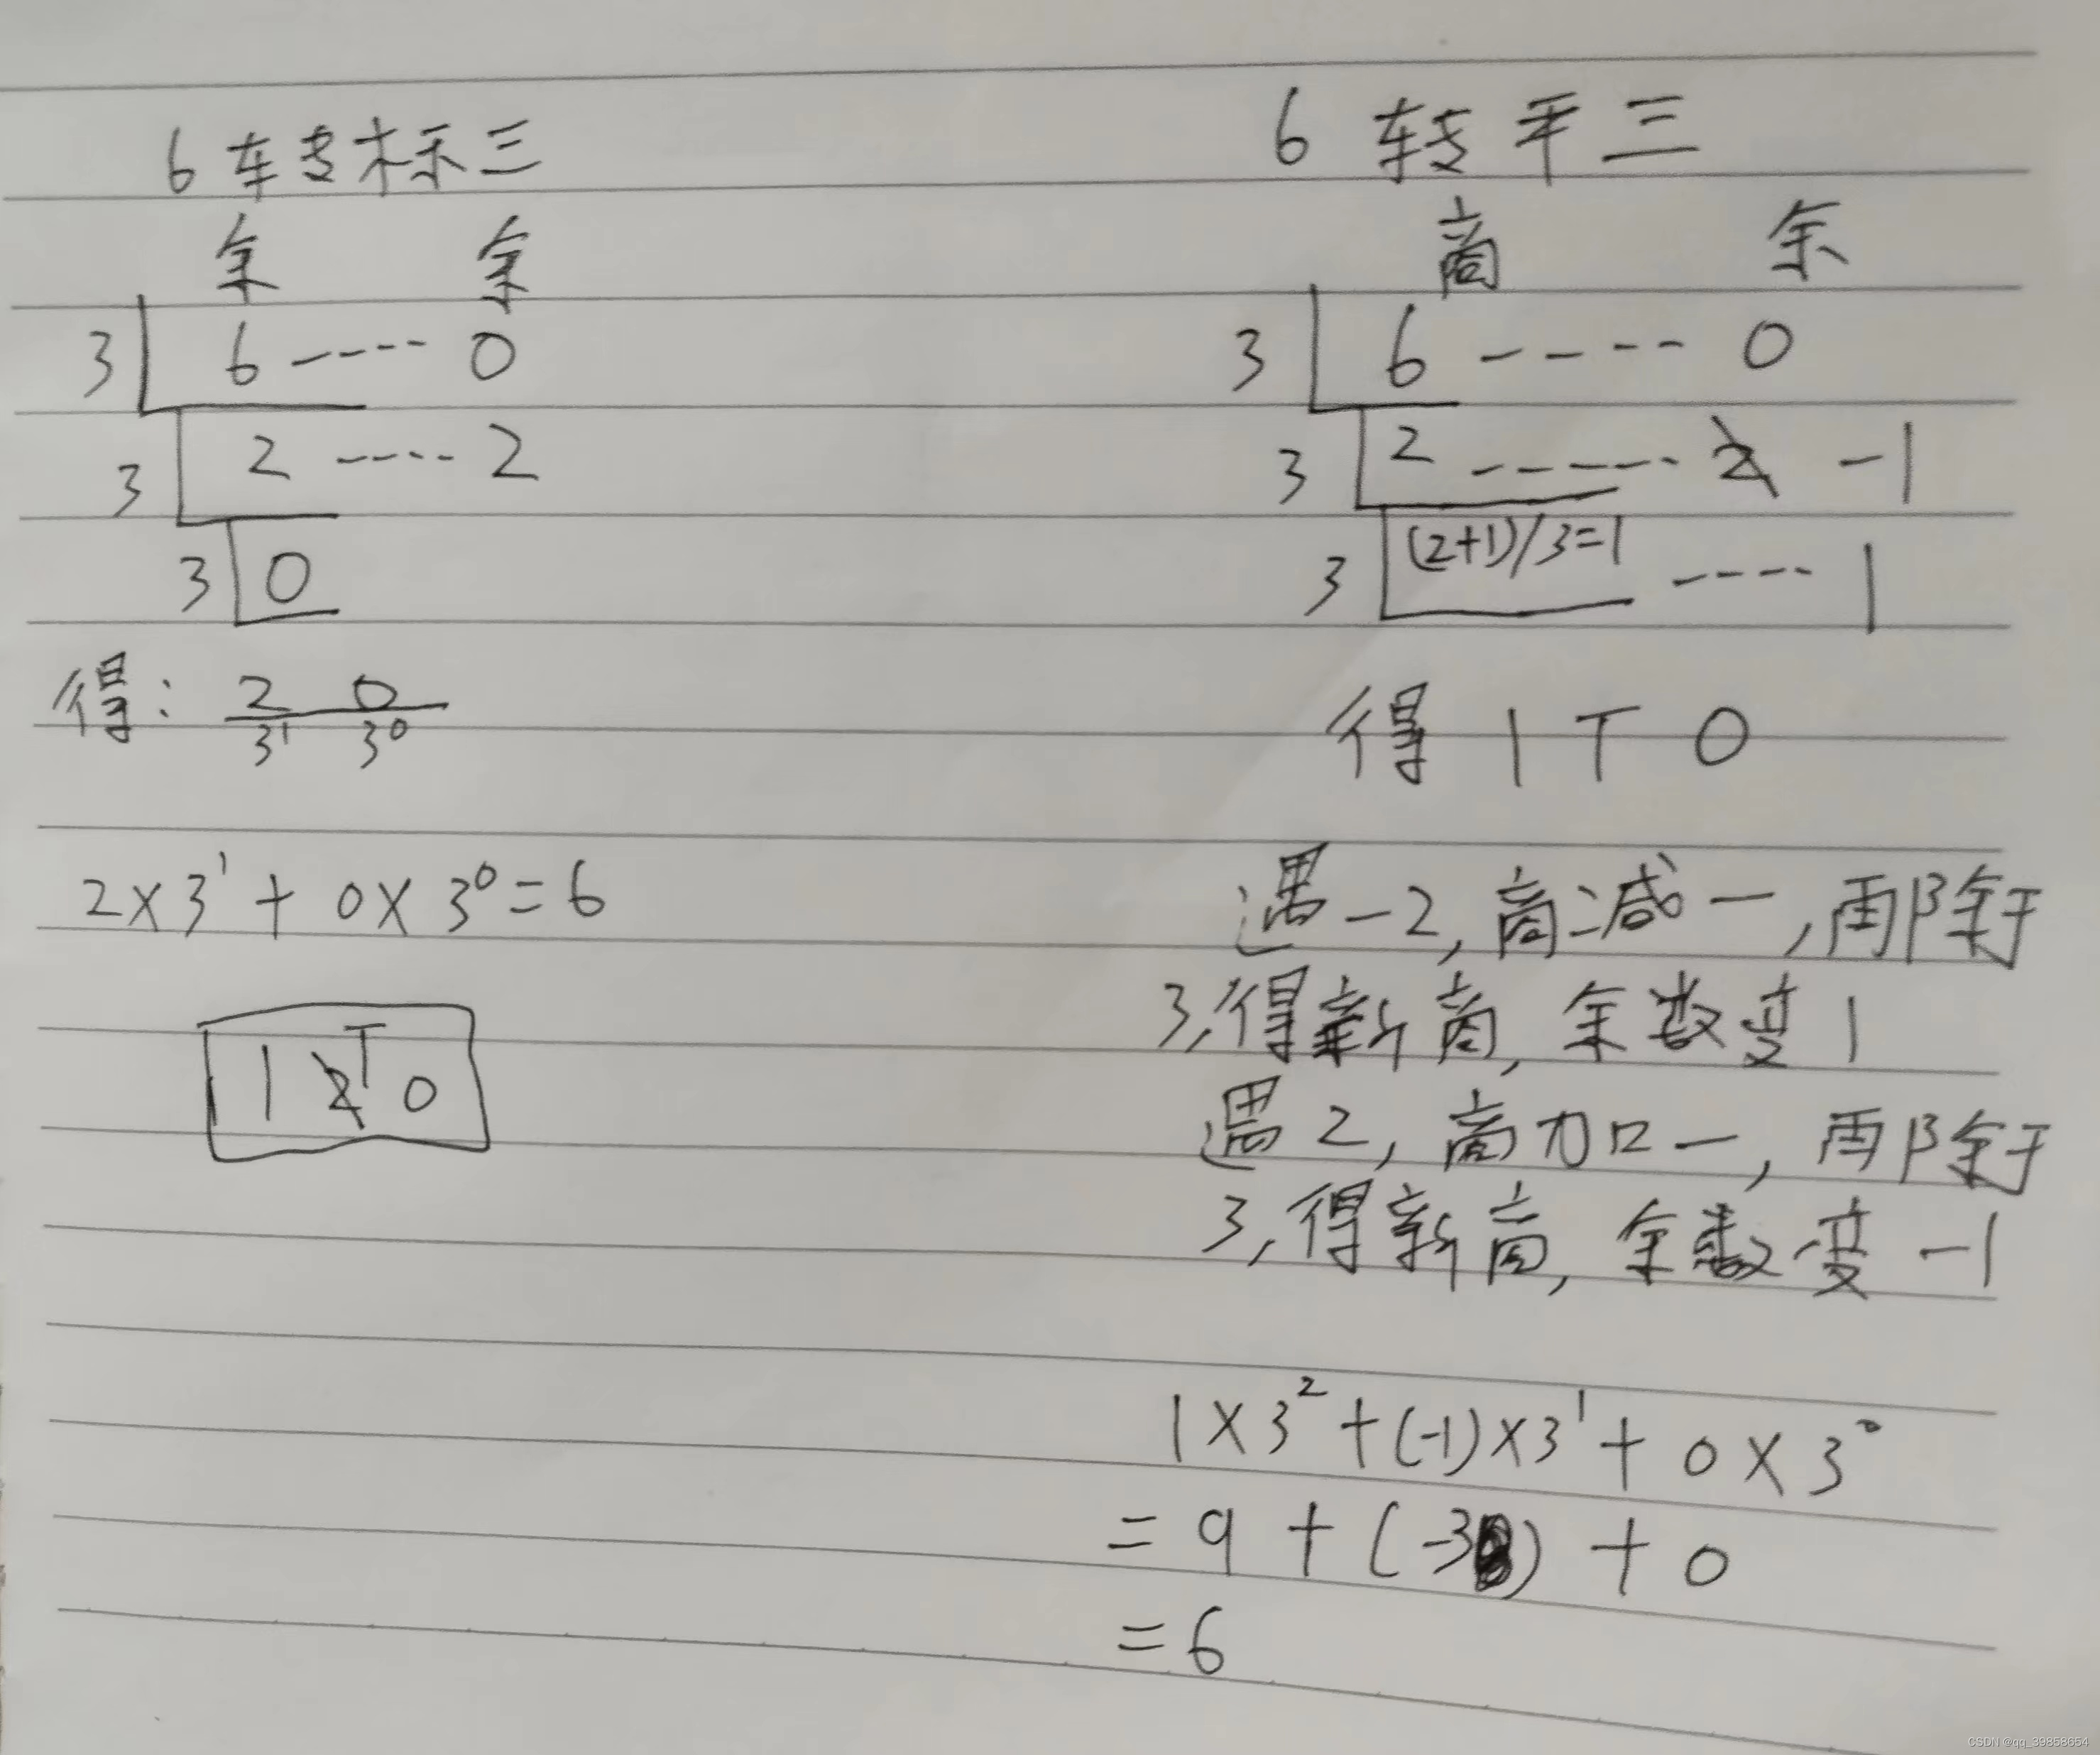 6转标三
余 余
3 6 ---- 0
3 2 ---- 2
3 0
得: 2 0
3¹ 3⁰
2×3¹ + 0×3⁰=6
T
1 2 0
6 转平三
商 余
3 6 ---- 0
3 2 ------ 2 -1
3 (2+1)/3=1 ---- 1
得 1 T 0
遇-2,商减一,再除于
3,得新商,余数变1
遇2,商加一,再除于
3,得新商,余数变-1
1×3²+(-1)×3¹+0×3⁰
=9+(-3)+0
=6
CSDN @qq_39858654